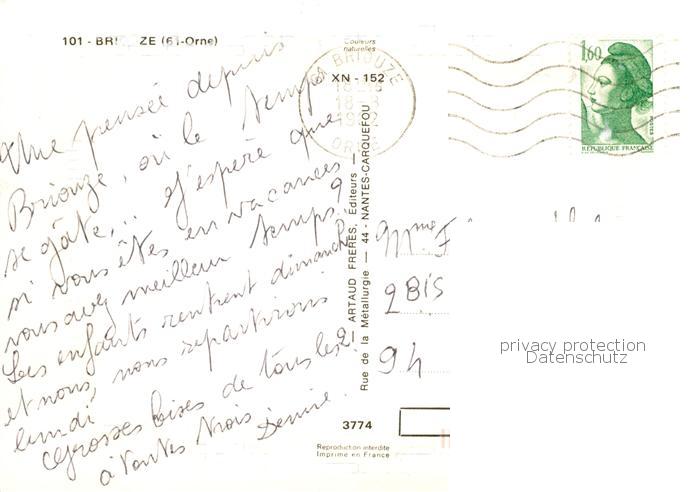 101 - BRI ZE (61-Orne)
Couleurs
naturelles
XN - 152
61 BRIOUZE
18 H
18 - 8
ORNE
1,60
POSTES
REPUBLIQUE FRANÇAISE
Une pensée depuis
Briouze, où le temps
se gâte,.. J'espère que
si vous êtes en vacances
vous avez meilleur temps?
Les enfants rentrent dimanche
et nous, nous repartirons
lundi,
Grosses bises de tous les 2
à toutes trois Denise.
ARTAUD FRERES, Editeurs —
Rue de la Métallurgie — 44 - NANTES-CARQUEFOU
Mme F
2 BIS
94
privacy protection
Datenschutz
3774
Reproduction interdite
Imprimé en France